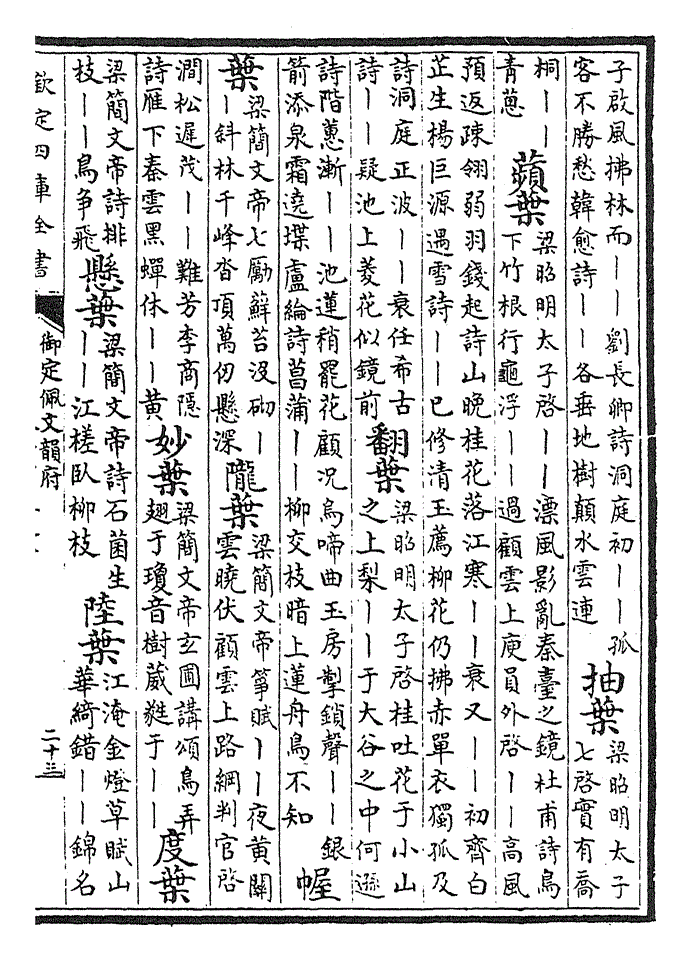 子啟風拂林而｜｜劉長卿詩洞庭初｜｜孤
客不勝愁韓愈詩｜｜各垂地樹顛水雲連
抽葉
梁昭明太子
七啓實有喬
桐｜｜
青蔥
蘋葉
梁昭明太子啓｜｜漂風影亂秦臺之鏡杜甫詩鳥
下竹根行龜浮｜｜過顧雲上庾員外啓｜｜高風
預返疎翎弱羽錢起詩山晚桂花落江寒｜｜衰又｜｜初齊白
芷生楊巨源遇雪詩｜｜已修清玉薦柳花仍拂赤單衣獨孤及
詩洞庭正波｜｜衰任希古
詩｜｜疑池上菱花似鏡前
翻葉
梁昭明太子啓桂吐花于小山
之上梨｜｜于大谷之中何遜
詩階蕙漸｜｜池蓮稍罷花顧況烏啼曲玉房掣鎖聲｜｜銀
箭添泉霜遶堞盧綸詩菖蒲｜｜柳交枝暗上蓮舟鳥不知
幄
葉
梁簡文帝七勵蘚苔沒砌｜
｜斜林千峰沓頂萬仞懸深
隴葉
梁簡文帝箏賦｜｜夜黃關
雲曉伏顧雲上路綱判官啓
澗松遲茂｜｜難芳李商隱
詩雁下秦雲黑蟬休｜｜黃
妙葉
梁簡文帝玄圃講頌鳥弄
翅于瓊音樹葳蕤于｜｜
度葉
梁簡文帝詩排
枝｜｜鳥争飛
懸葉
梁簡文帝詩石菌生
｜｜江槎臥柳枝
陸葉
江淹金燈草賦山
華綺錯｜｜錦名
欽定四庫全書
御定佩文韻府
二十三